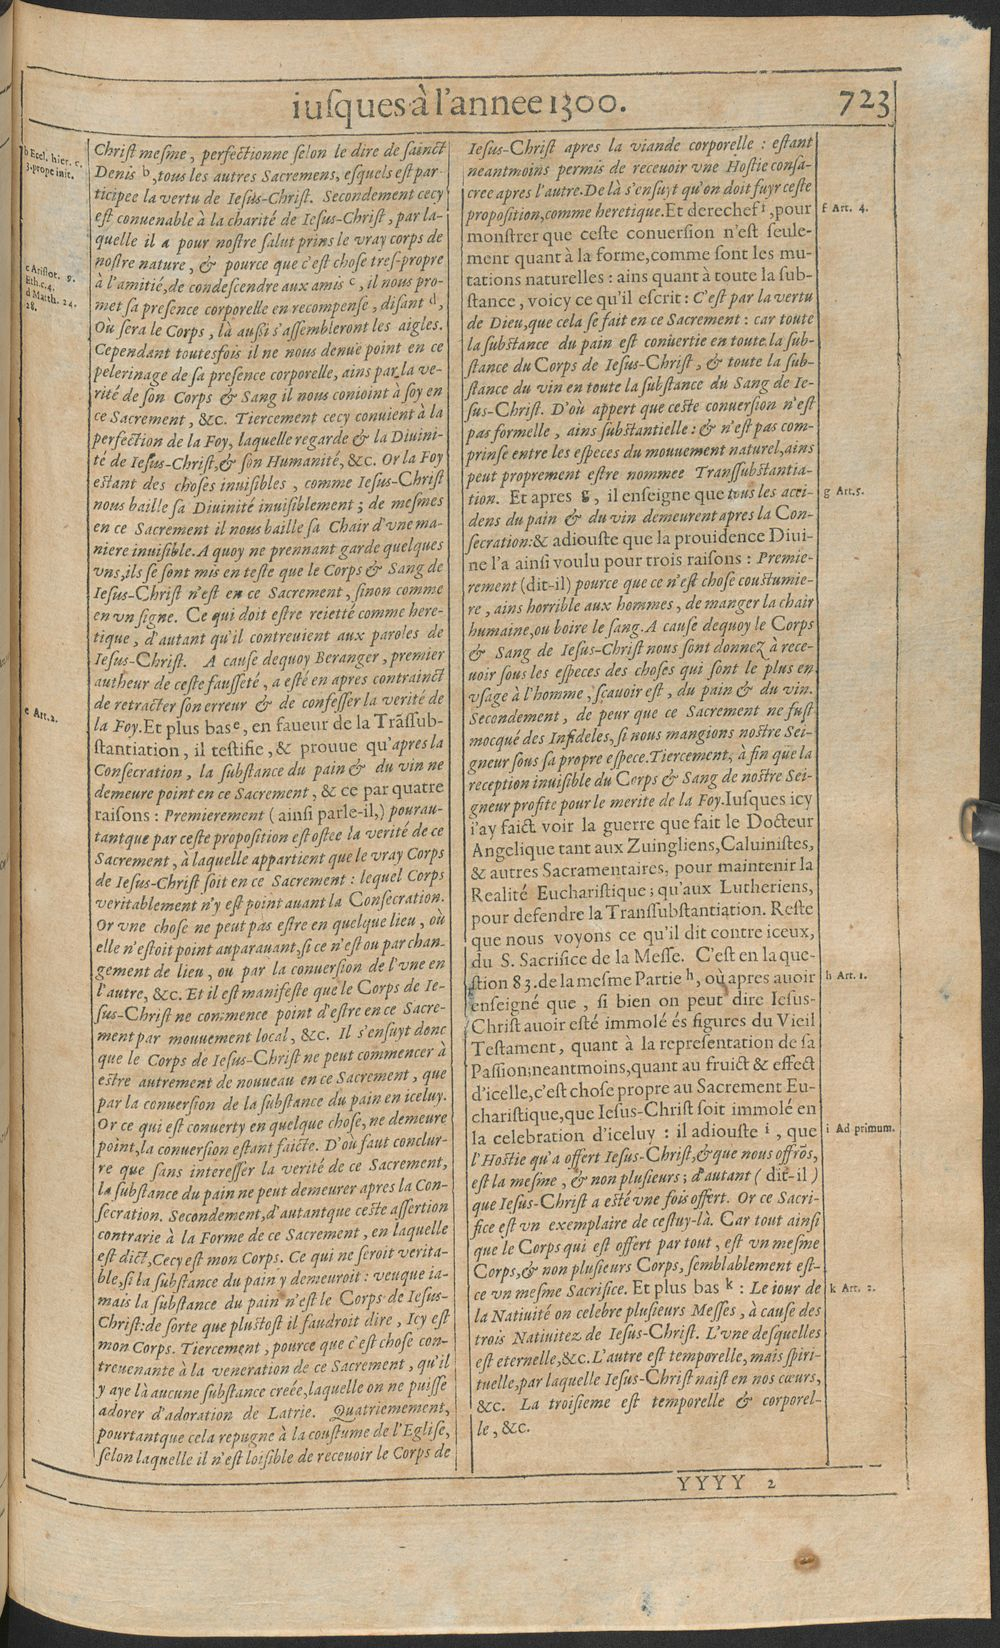 iuſques à l'annee 1300. 723
b Eccl. hier. c.
3. prope init.
c Ariſtot. 9.
Eth. c. 4.
d Matth. 24.
28.
e Art. 2.
Chriſt meſme, perfectionne ſelon le dire de ſainct
Denis b, tous les autres Sacremens, eſquels eſt par-
ticipee la vertu de Ieſus-Chriſt. Secondement cecy
eſt conuenable à la charité de Ieſus-Chriſt, par la-
quelle il a pour noſtre ſalut prins le vray corps de
noſtre nature, & pource que c'eſt choſe treſ-propre
à l'amitié, de condeſcendre aux amis c, il nous pro-
met ſa preſence corporelle en recompenſe, diſant d,
Où ſera le Corps, là auſſi s'aſſembleront les aigles.
Cependant toutesfois il ne nous denuë point en ce
pelerinage de ſa preſence corporelle, ains par la ve-
rité de ſon Corps & Sang il nous conioint à ſoy en
ce Sacrement, &c. Tiercement cecy conuient à la
perfection de la Foy, laquelle regarde & la Diuini-
té de Ieſus-Chriſt, & ſon Humanité, &c. Or la Foy
eſtant des choſes inuiſibles, comme Ieſus-Chriſt
nous baille ſa Diuinité inuiſiblement; de meſmes
en ce Sacrement il nous baille ſa Chair d'vne ma-
niere inuiſible. A quoy ne prennant garde quelques
vns, ils ſe ſont mis en teſte que le Corps & Sang de
Ieſus-Chriſt n'eſt en ce Sacrement, ſinon comme
en vn ſigne. Ce qui doit eſtre reietté comme here-
tique, d'autant qu'il contreuient aux paroles de
Ieſus-Chriſt. A cauſe dequoy Beranger, premier
autheur de ceſte fauſſeté, a eſté en apres contrainct
de retracter ſon erreur & de confeſſer la verité de
la Foy. Et plus bas e, en faueur de la Trãſſub-
ſtantiation, il teſtifie, & prouue qu'apres la
Conſecration, la ſubſtance du pain & du vin ne
demeure point en ce Sacrement, & ce par quatre
raiſons: Premierement (ainſi parle-il,) pourau-
tant que par ceſte propoſition eſt oſtee la verité de ce
Sacrement, à laquelle appartient que le vray Corps
de Ieſus-Chriſt ſoit en ce Sacrement: lequel Corps
veritablement n'y eſt point auant la Conſecration.
Or vne choſe ne peut pas eſtre en quelque lieu, où
elle n'eſtoit point auparauant, ſi ce n'eſt ou par chan-
gement de lieu, ou par la conuerſion de l'vne en
l'autre, &c. Et il eſt manifeſte que le Corps de Ie-
ſus-Chriſt ne commence point d'eſtre en ce Sacre-
ment par mouuement local, &c. Il s'enſuyt donc
que le Corps de Ieſus-Chriſt ne peut commencer à
eſtre autrement de nouueau en ce Sacrement, que
par la conuerſion de la ſubſtance du pain en iceluy.
Or ce qui eſt conuerty en quelque choſe, ne demeure
point, la conuerſion eſtant faicte. D'où faut conclur-
re que ſans intereſſer la verité de ce Sacrement,
la ſubſtance du pain ne peut demeurer apres la Con-
ſecration. Secondement, d'autantque ceſte aſſertion
contrarie à la Forme de ce Sacrement, en laquelle
eſt dict, Cecy eſt mon Corps. Ce qui ne ſeroit verita-
ble, ſi la ſubſtance du pain y demeuroit: veuque ia-
mais la ſubſtance du pain n'eſt le Corps de Ieſus-
Chriſt: de ſorte que pluſtoſt il faudroit dire, Icy eſt
mon Corps. Tiercement, pource que c'eſt choſe con-
treuenante à la veneration de ce Sacrement, qu'il
y aye là aucune ſubſtance creée, laquelle on ne puiſſe
adorer d'adoration de Latrie. Quatriemement,
pourtantque cela repugne à la couſtume de l'Egliſe,
ſelon laquelle il n'eſt loiſible de receuoir le Corps de
Ieſus-Chriſt apres la viande corporelle: eſtant
neantmoins permis de receuoir vne Hoſtie conſa-
cree apres l'autre. De là s'enſuyt qu'on doit fuyr ceſte
propoſition, comme heretique. Et derechef f, pour
monſtrer que ceſte conuerſion n'eſt ſeule-
ment quant à la forme, comme ſont les mu-
tations naturelles: ains quant à toute la ſub-
ſtance, voicy ce qu'il eſcrit: C'eſt par la vertu
de Dieu, que cela ſe fait en ce Sacrement: car toute
la ſubſtance du pain eſt conuertie en toute la ſub-
ſtance du Corps de Ieſus-Chriſt, & toute la ſub-
ſtance du vin en toute la ſubſtance du Sang de Ie-
ſus-Chriſt. D'où appert que ceſte conuerſion n'eſt
pas formelle, ains ſubſtantielle: & n'eſt pas com-
prinſe entre les eſpeces du mouuement naturel, ains
peut proprement eſtre nommee Tranſſubſtantia-
tion. Et apres g, il enſeigne que tous les acci-
dens du pain & du vin demeurent apres la Con-
ſecration: & adiouſte que la prouidence Diui-
ne l'a ainſi voulu pour trois raiſons: Premie-
rement (dit-il) pource que ce n'eſt choſe couſtumie-
re, ains horrible aux hommes, de manger la chair
humaine, ou boire le ſang. A cauſe dequoy le Corps
& Sang de Ieſus-Chriſt nous ſont donnez à rece-
uoir ſous les eſpeces des choſes qui ſont le plus en
vſage à l'homme, ſcauoir eſt, du pain & du vin.
Secondement, de peur que ce Sacrement ne fuſt
mocqué des Infideles, ſi nous mangions noſtre Sei-
gneur ſous ſa propre eſpece. Tiercement, à fin que la
reception inuiſible du Corps & Sang de noſtre Sei-
gneur profite pour le merite de la Foy. Iuſques icy
i'ay faict voir la guerre que fait le Docteur
Angelique tant aux Zuingliens, Caluiniſtes,
& autres Sacramentaires, pour maintenir la
Realité Euchariſtique; qu'aux Lutheriens,
pour defendre la Tranſſubſtantiation. Reſte
que nous voyons ce qu'il dit contre iceux,
du S. Sacrifice de la Meſſe. C'eſt en la que-
ſtion 83. de la meſme Partie h, où apres auoir
enſeigné que, ſi bien on peut dire Ieſus-
Chriſt auoir eſté immolé és figures du Vieil
Teſtament, quant à la repreſentation de ſa
Paſſion; neantmoins, quant au fruict & effect
d'icelle, c'eſt choſe propre au Sacrement Eu-
chariſtique, que Ieſus-Chriſt ſoit immolé en
la celebration d'iceluy: il adiouſte i, que
l'Hoſtie qu'a offert Ieſus-Chriſt, & que nous offrõs,
eſt la meſme, & non pluſieurs; d'autant (dit-il)
que Ieſus-Chriſt a eſté vne fois offert. Or ce Sacri-
fice eſt vn exemplaire de ceſtuy-là. Car tout ainſi
que le Corps qui eſt offert par tout, eſt vn meſme
Corps, & non pluſieurs Corps, ſemblablement eſt-
ce vn meſme Sacrifice. Et plus bas k: Le iour de
la Natiuité on celebre pluſieurs Meſſes, à cauſe des
trois Natiuitez de Ieſus-Chriſt. L'vne deſquelles
eſt eternelle, &c. L'autre eſt temporelle, mais ſpiri-
tuelle, par laquelle Ieſus-Chriſt naiſt en nos cœurs,
&c. La troiſieme eſt temporelle & corporel-
le, &c.
f Art. 4.
g Art. 5.
h Art. 1.
i Ad primum.
k Art. 2.
YYYY 2